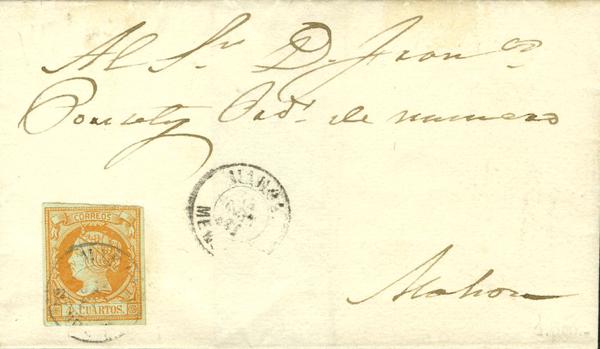 Al Sr. D. Franco.
Ponsety Ord. de numero
MAHON
ME
CORREOS
4 CUARTOS.
Mahon